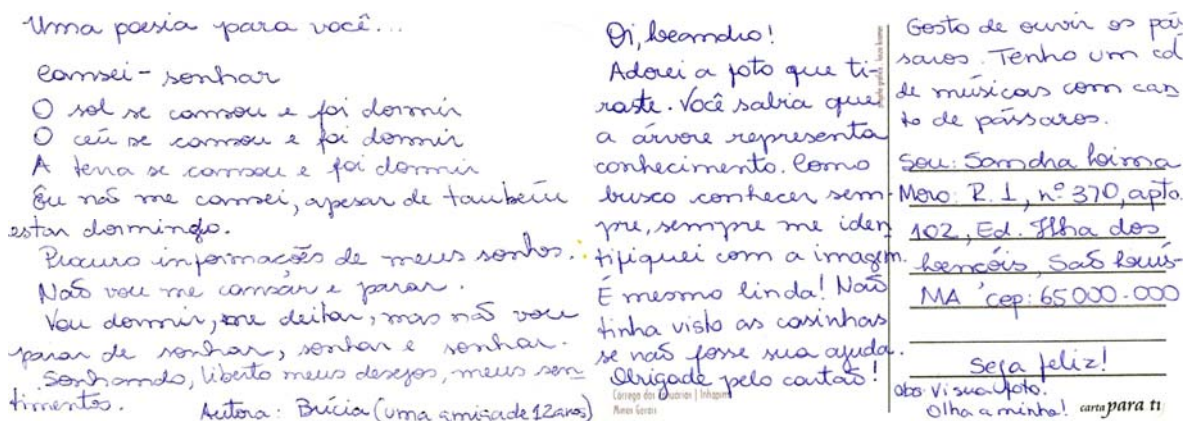 Uma poesia para você...
Cansei - sonhar
O sol se cansou e foi dormir
O céu se cansou e foi dormir
A terra se cansou e foi dormir
Eu não me cansei, apesar de também
estar dormindo.
Procuro informações de meus sonhos.
Não vou me cansar e parar.
Vou dormir, me deitar, mas não vou
parar de sonhar, sonhar e sonhar.
Sonhando, liberto meus desejos, meus sen-
timentos.
Autora: Brícia (uma amiga de 12 anos)
Oi, Leandro!
Adorei a foto que ti-
raste. Você sabia que
a árvore representa
conhecimento. Como
busco conhecer sem-
pre, sempre me iden
tifiquei com a imagem.
É mesmo linda! Não
tinha visto as casinhas
se não fosse sua ajuda.
Obrigade pelo cartão!
Córrego dos | Inhapim
Minas Gerais
Gosto de ouvir os pás
saros. Tenho um cd
de músicas com can
to de pássaros.
Sou: Sandra Lima
Moro: R. 1, nº 370, apto.
102, Ed. Ilha dos
Lençóis, São Luís-
MA cep: 65000-000
Seja feliz!
obs: Vi sua foto.
Olha a minha!
carta para ti